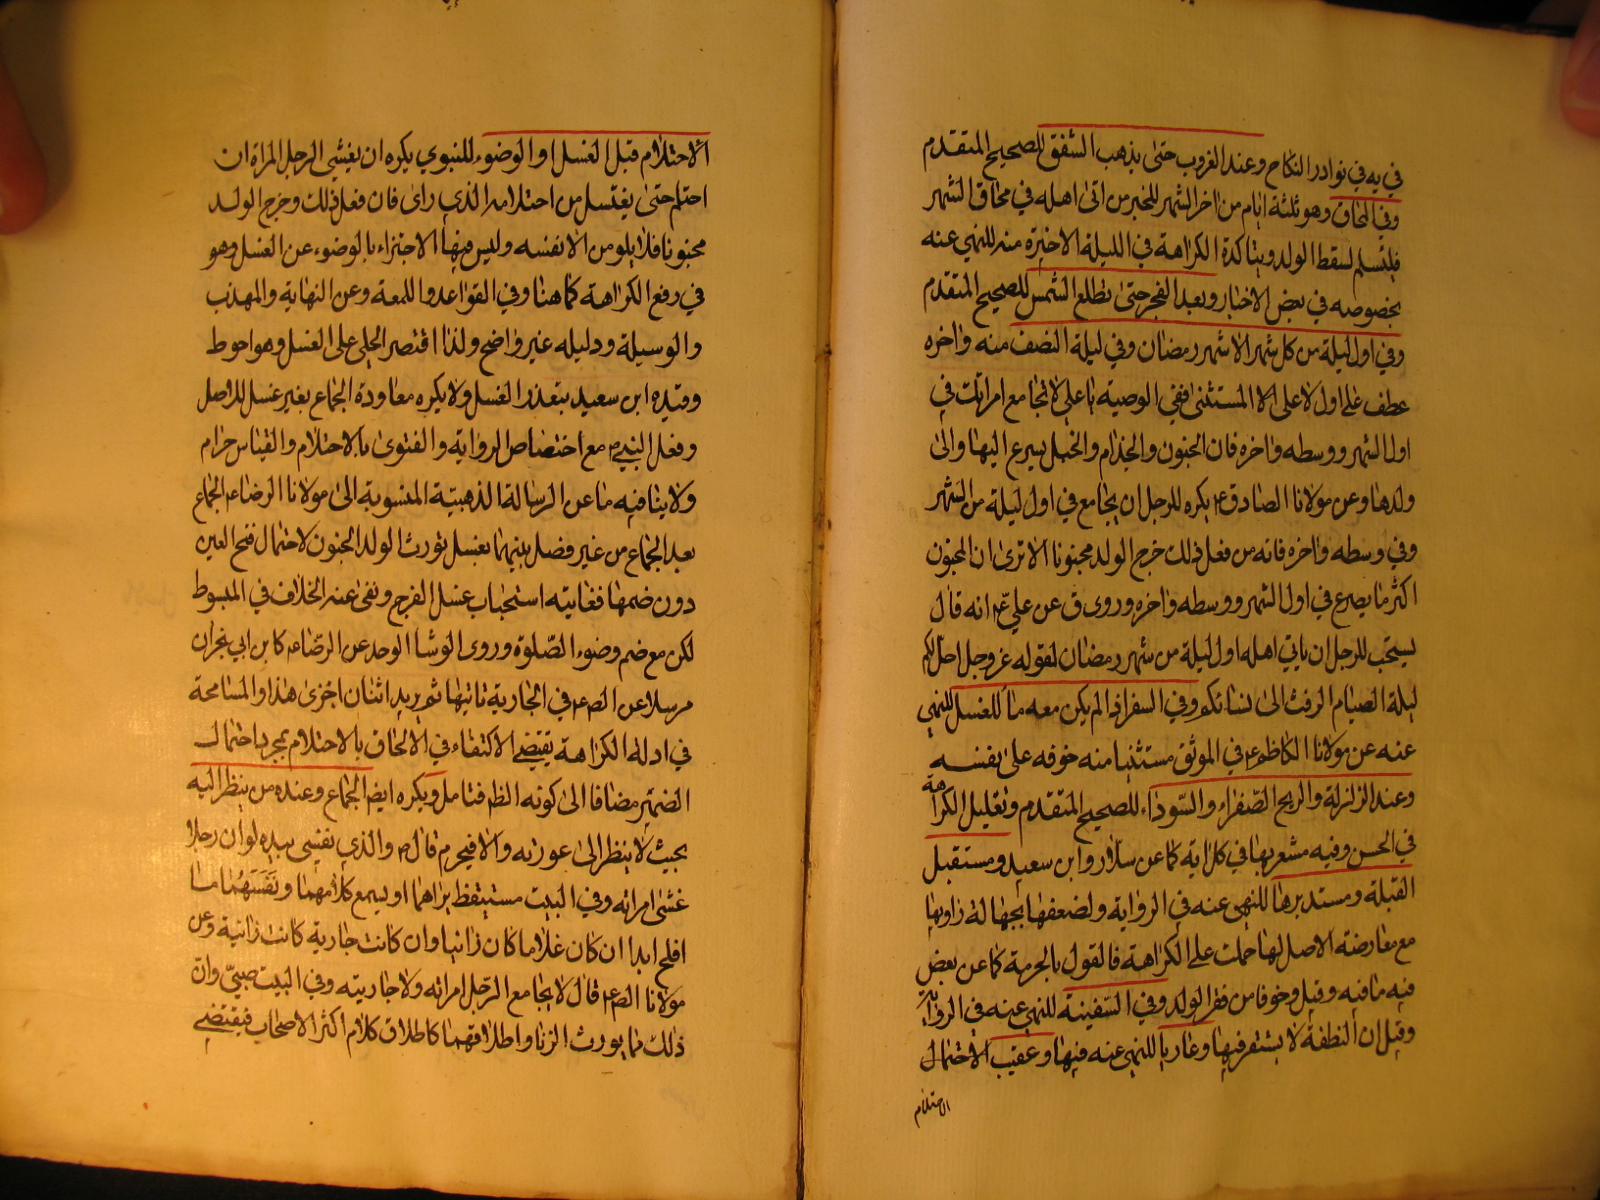 في يه في نوادر النكاح وعند الغروب حتى يذهب الشفق للصحيح المتقدم
وفي المحاق وهو ثلثة ايام من اخر الشهر للخبر من اتى اهله في محاق الشهر
فليسلم لسقط الولد ويتاكد الكراهة في الليلة الاخيرة منه للنهي عنه
بخصوصه في بعض الاخبار وبعد الفجر حتى تطلع الشمس للصحيح المتقدم
وفي اول ليلة من كل شهر الا شهر رمضان وفي ليلة النصف منه واخره
عطف على اول لا على المستثنى ففي الوصية يا علي لا تجامع امراتك في
اول الشهر ووسطه واخره فان الجنون والجذام والخبل يسرع اليها والى
ولدها وعن مولانا الصادق ع يكره للرجل ان يجامع في اول ليلة من الشهر
وفي وسطه واخره فانه من فعل ذلك خرج الولد مجنونا الا ترى ان المجنون
اكثر ما يصرع في اول الشهر ووسطه واخره وروى ق عن علي ع انه قال
يستحب للرجل ان ياتي اهله اول ليلة من شهر رمضان لقوله عز وجل احل لكم
ليلة الصيام الرفث الى نسائكم وفي السفر اذا لم يكن معه ماء للغسل للنهي
عنه عن مولانا الكاظم ع في الموثق مستثنيا منه خوفه على نفسه
وعند الزلزلة والريح الصفراء والسوداء للصحيح المتقدم وتعليل الكراهة
في الحسن وفيه مشعر بها في كل اية كما عن سلار وابن سعيد ومستقبل
القبلة ومستدبرها للنهي عنه في الرواية ولضعفها بجهالة راويها
مع معارضة الاصل لها حملت على الكراهة فالقول بالحرمة كما عن بعض
فيه ما فيه وقيل وخوفا من فقر الولد وفي السفينة للنهي عنه في الرواية
وقيل ان النطفة لا يستقر فيها وعاريا للنهي عنه فيها وعقيب الاحتلام
الاحتلام
الاحتلام قبل الغسل او الوضوء للنبوي يكره ان يغشي الرجل المراة ان
احتلم حتى يغتسل من احتلامه الذي راى فان فعل ذلك وخرج الولد
مجنونا فلا يلومن الا نفسه وليس فيها الاجتزاء بالوضوء عن الغسل وهو
في رفع الكراهة كما هنا وفي القواعد واللمعة وعن النهاية والمهذب
والوسيلة ودليله غير واضح ولذا اقتصر الحلي على الغسل وهو احوط
وقيده ابن سعيد بتعذر الغسل ولا يكره معاودة الجماع بغير غسل للاصل
وفعل النبي ص مع اختصاص الرواية والفتوى بالاحتلام والقياس حرام
ولا ينافيه ما عن الرسالة الذهبية المنسوبة الى مولانا الرضا ع الجماع
بعد الجماع من غير فصل بينهما بغسل يورث الولد الجنون لاحتمال فتح الغين
دون ضمها فغايته استحباب غسل الفرج ونفى عنه الخلاف في المبسوط
لكن مع ضم وضوء الصلوة وروى الوشا الوحد عن الرضا ع كابن ابي نجران
مرسلا عن الص ع في الجارية تاتيها ثم يريد اثنان اجزى هذا والمسامحة
في ادلة الكراهة يقتضي الاكتفاء في الالحاق بالاحتلام بمجرد احتمال
الضم مضافا الى كونه الظ فتامل ويكره ايض الجماع وعنده من ينظر اليه
بحيث لا ينظر الى عورته والا فيحرم قال ص والذي نفسي بيده لو ان رجلا
غشى امراته وفي البيت مستيقظ يراهما او يسمع كلامهما ونفسهما ما
افلح ابدا ان كان غلاما كان زانيا وان كانت جارية كانت زانية وعن
مولانا الص ع قال لا يجامع الرجل امراته ولا جاريته وفي البيت صبي وان
ذلك مما يورث الزنا واطلاقهما كاطلاق كلام اكثر الاصحاب فيقتضي